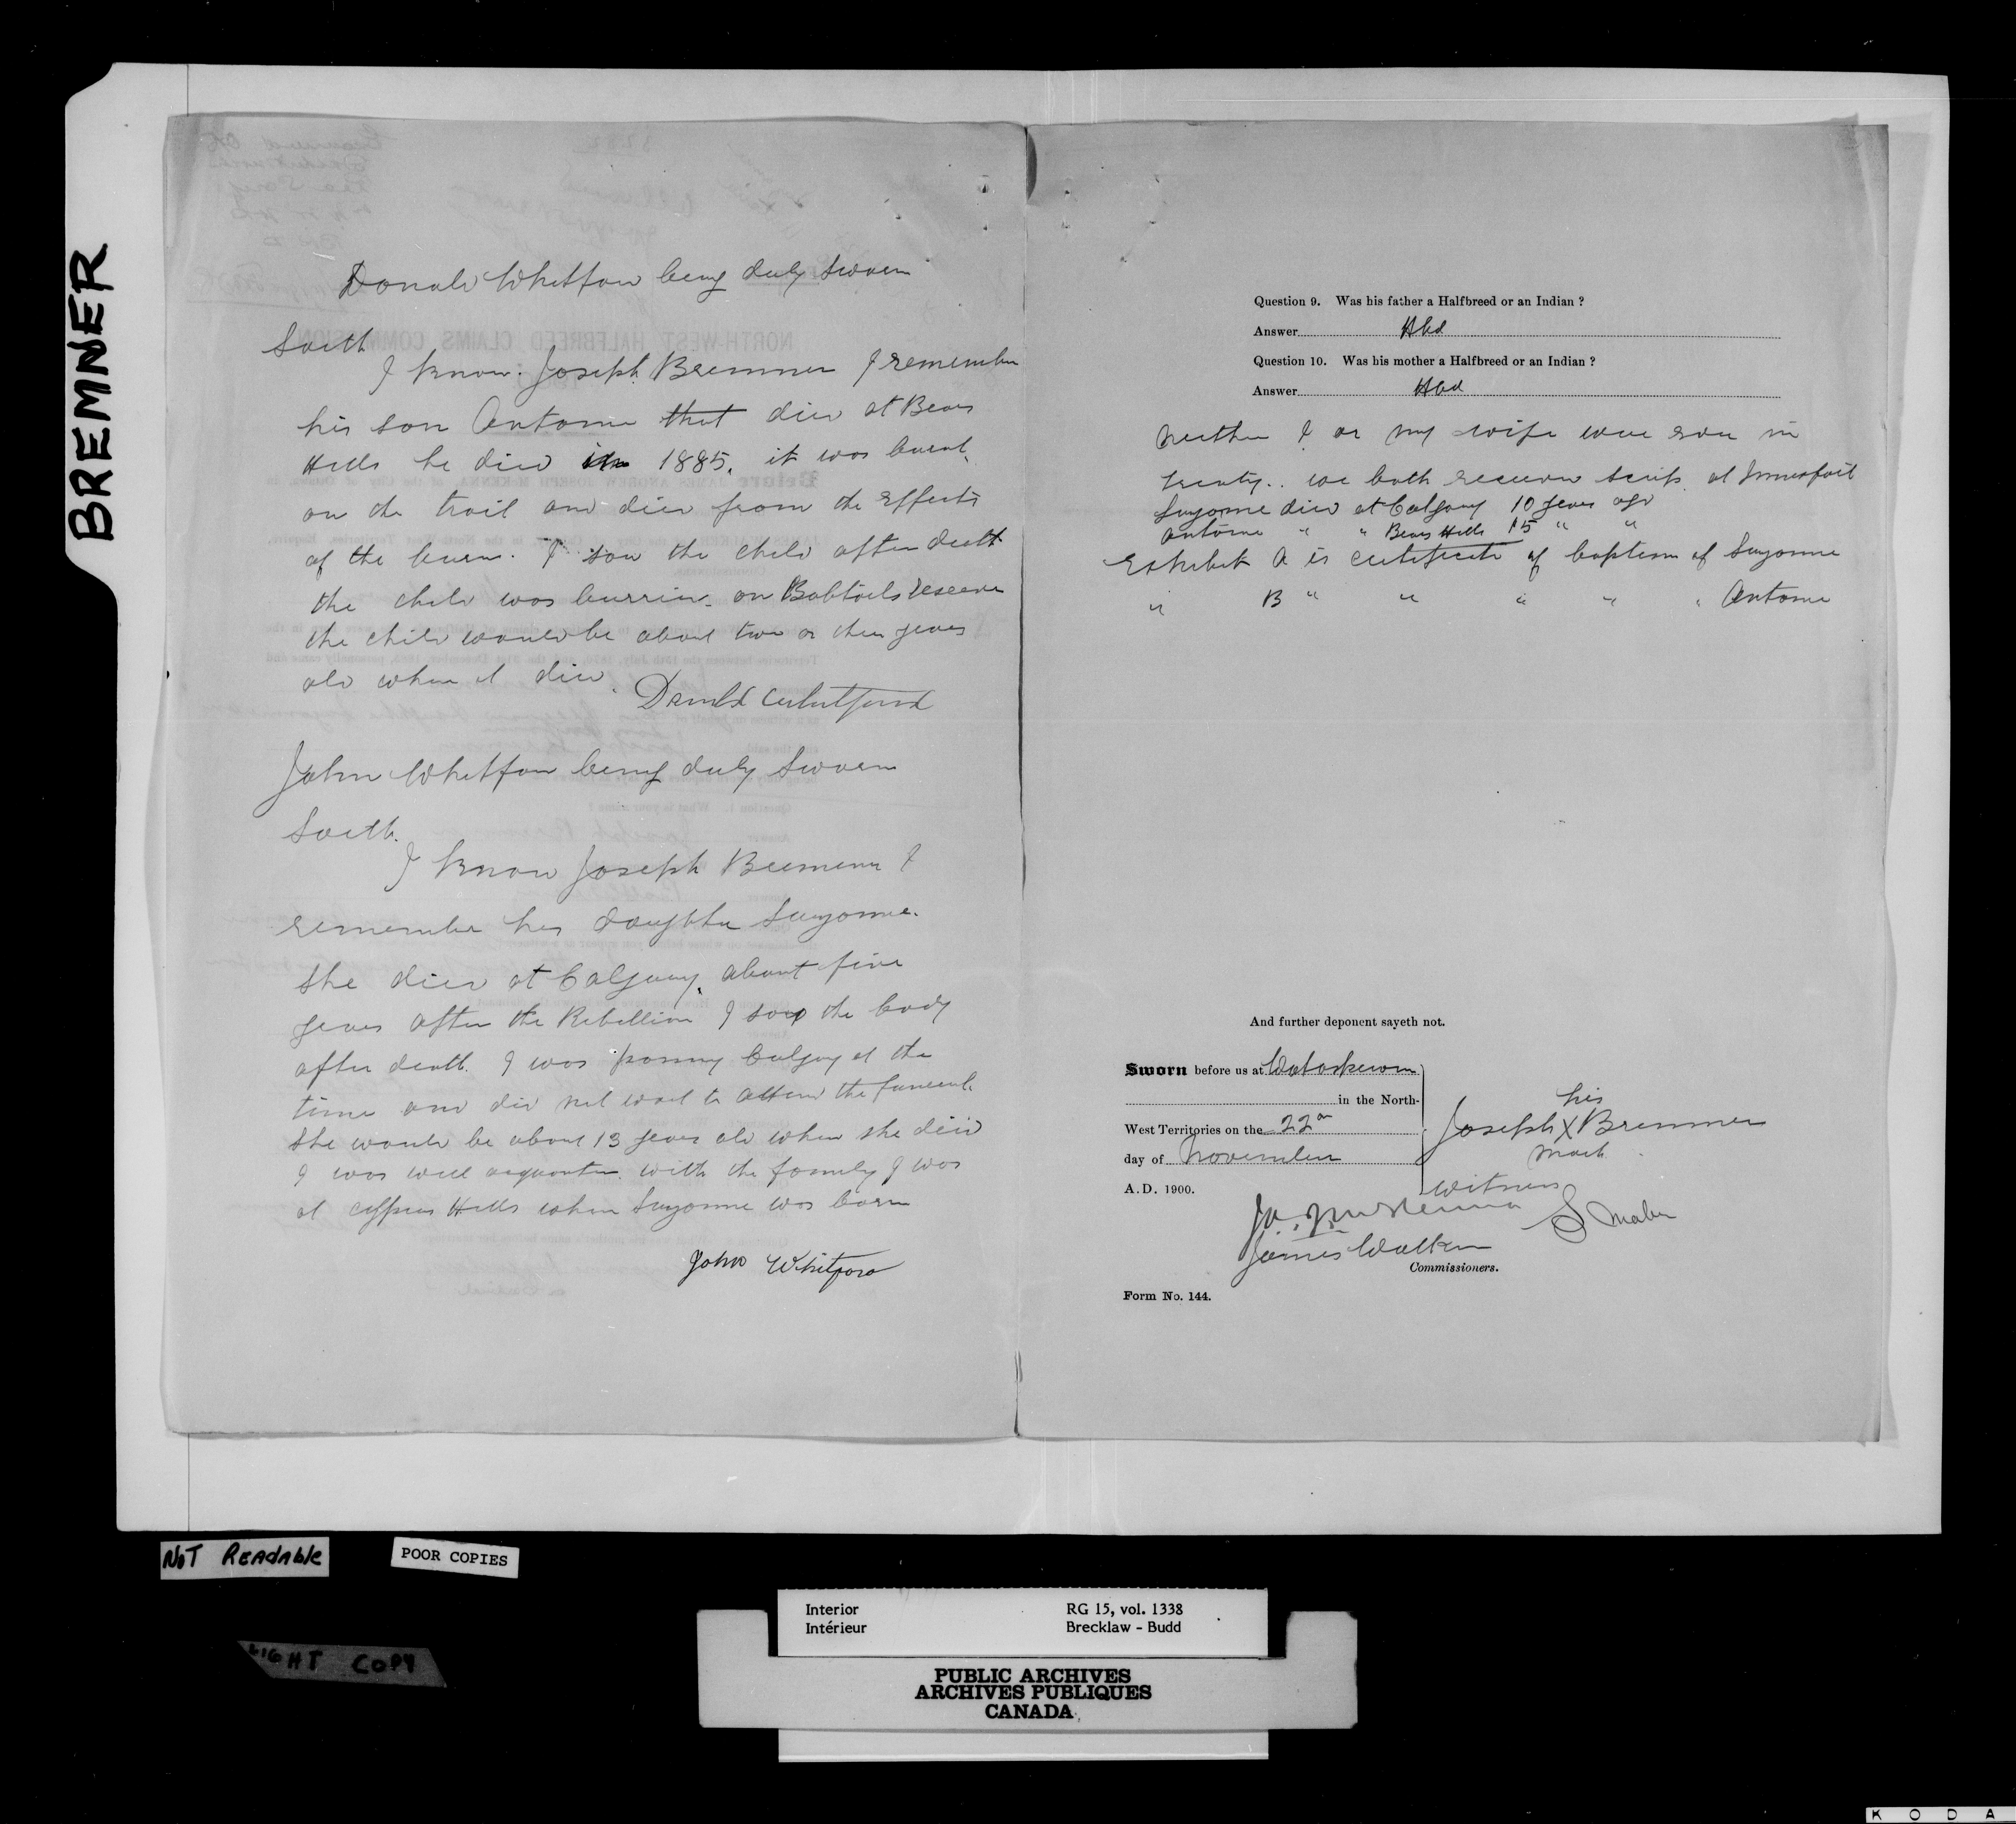 BREMNER
Donald Whitford being duly sworn
Saith
I know Joseph Bremner I remember
his son Antoine that died at Bears
Hills he died in 1885. it was burnt
on the trail and died from the effects
of the burn. I saw the child after death
the child was burried on Bobtails reserve
the child would be about two or three years
old when it died.
Donald Whitford
John Whitford being duly sworn
Saith.
I know Joseph Bremner I
remember his daughter
she died at Calgary about five
years after the Rebellion I saw the body
after death. I was passing Calgary at the
time and did not wait to attend the funeral.
She would be about 13 years old when she died
I was well acquainted with the family I was
at Cypress Hills when was born
John Whitford
Question 9. Was his father a Halfbreed or an Indian ?
Answer Hbd
Question 10. Was his mother a Halfbreed or an Indian ?
Answer Hbd
Neither I or my wife were ever in
treaty. we both received scrip at Innisfail
died at Calgary 10 years ago
Antoine " " Bears Hills 15 " "
Exhibit A is certificate of baptism of
" B " " " " " Antoine
And further deponent sayeth not.
Sworn before us at Wetaskiwin
in the North-
West Territories on the 22nd
day of November
A.D. 1900.
his
Joseph X Bremner
mark
Witness
J. A. J. McKenna
James Walker
Commissioners.
Form No. 144.
NOT READABLE
POOR COPIES
LIGHT COPY
Interior
Intérieur
RG 15, vol. 1338
Brecklaw - Budd
PUBLIC ARCHIVES
ARCHIVES PUBLIQUES
CANADA
K O D A